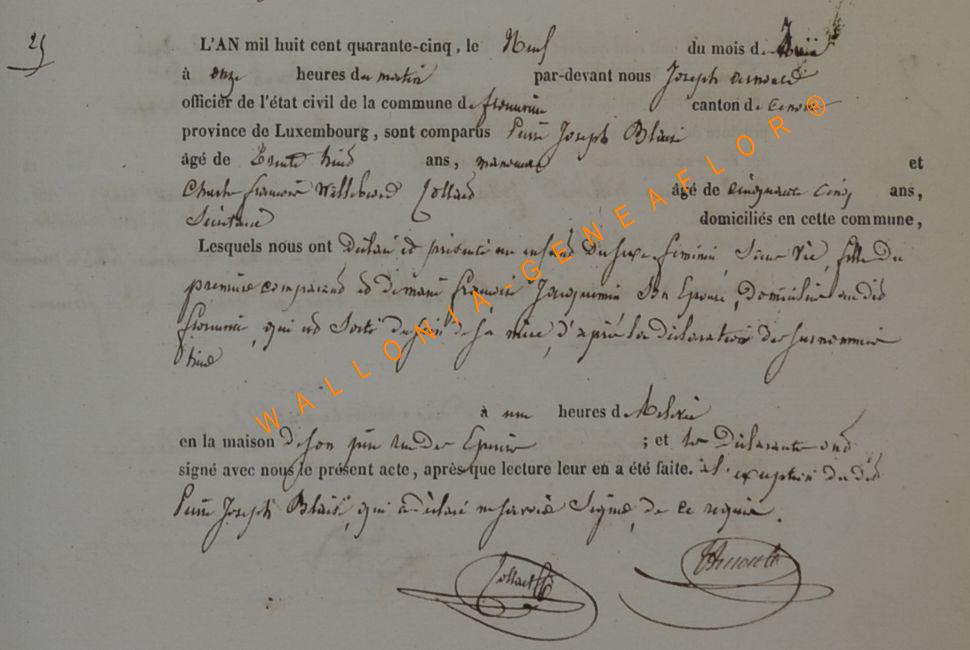 25
L'AN mil huit cent quarante-cinq, le Neuf du mois de Juin
à onze heures du matin par-devant nous Joseph Arnould
officier de l'état civil de la commune de canton de
province de Luxembourg, sont comparus Pierre Joseph Blaise
âgé de trente huit ans, manœuvre et
Charles François Willebrord Collard âgé de cinquante cinq ans,
domiciliés en cette commune,
Lesquels nous ont déclaré et présenté un enfant du sexe féminin, sans vie, fille du
premier comparant et de marie françoise Jacquemin son Epouse, domiciliés audit
qui est sorti du sein de sa mère, d'après la déclaration des susnommés
à une heures de Relevée
en la maison de son père rue des ; et les Déclarants ont
signé avec nous le présent acte, après que lecture leur en a été faite. à l'exception du dit
Pierre Joseph Blaise, qui a déclaré ne savoir signer, de ce requis.
Collard Arnould
WALLONIA-GENEAFLOR®